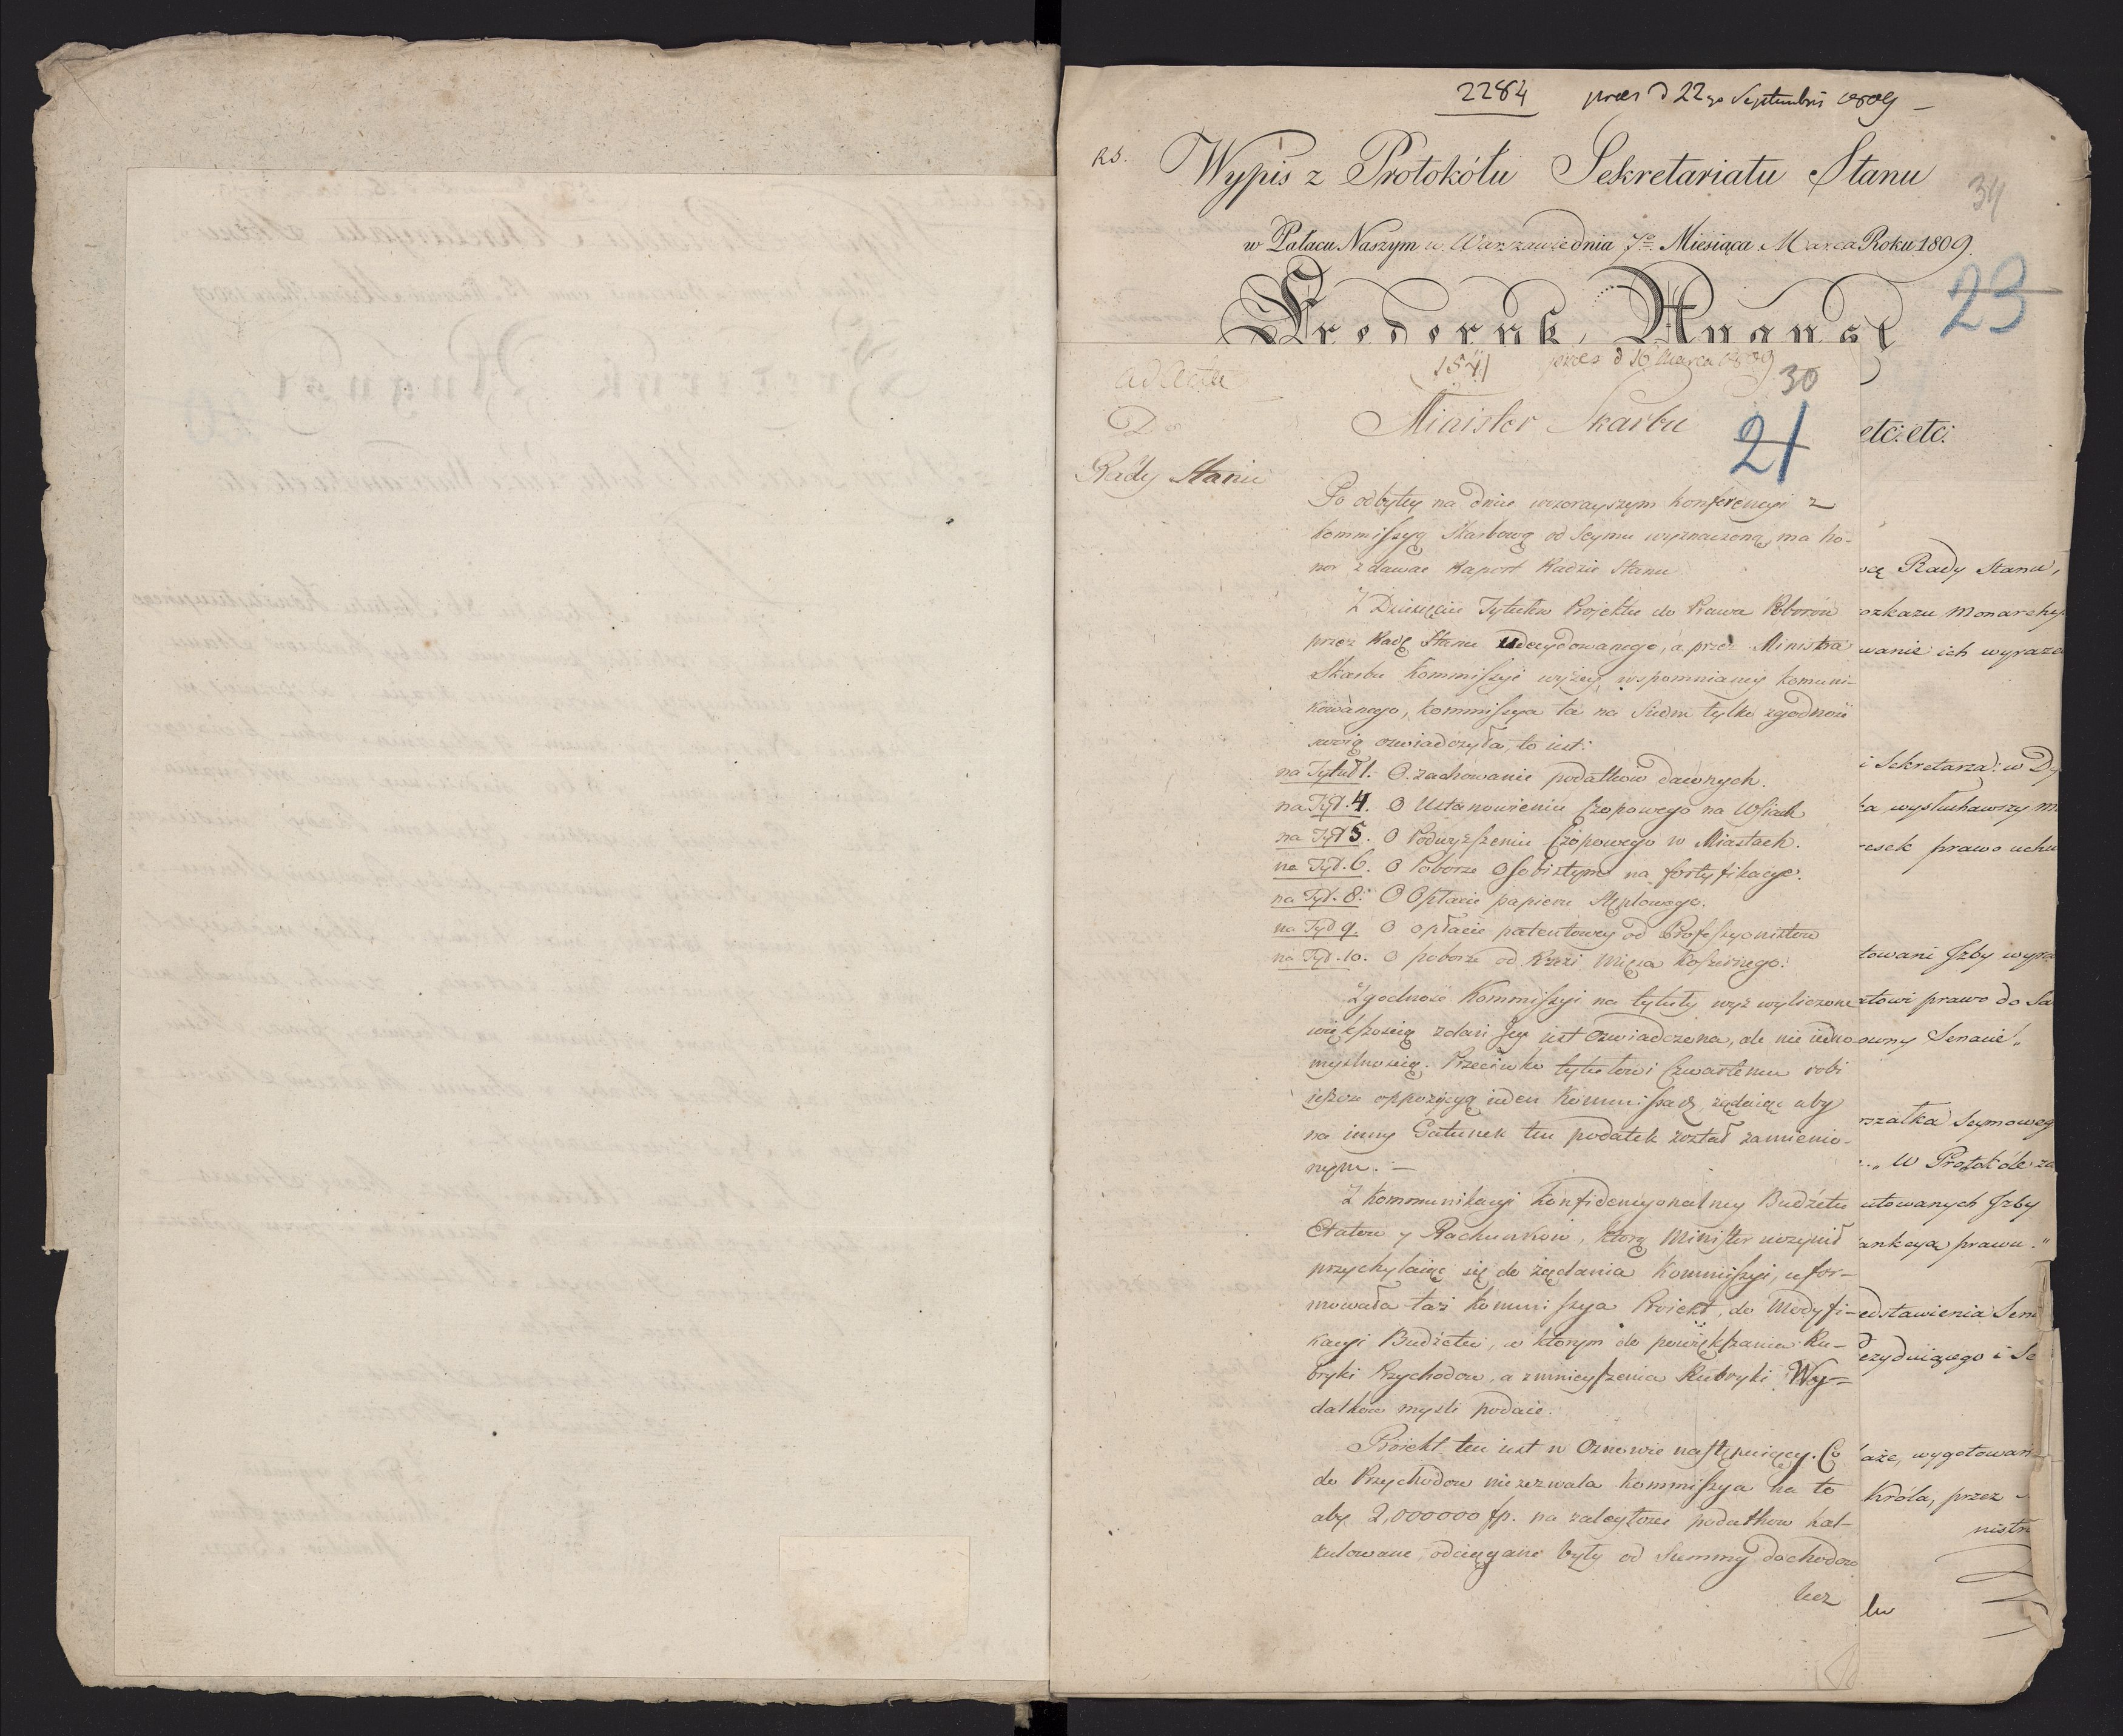 2284 præs d 22go Septembris 1809 –
RS. Wypis z Protokółu Sekretariatu Stanu
34
w Pałacu Naszym w Warszawie dnia 7º Miesiąca Marca Roku 1809.
23
Fryderyk August
ad Acta 1541 præs d 10 Marca 1809
30
Do Minister Skarbu
21
etc: etc:
Rady Stanu
Po odbytey na dniu wczorayszym konferencyi z
kommissyą Skarbową od Seymu wyznaczoną, ma ho-
nor zdawać Raport Radzie Stanu
Z Dziesięciu Tytułów Projektu do Prawa Poborów
przez Radę Stanu udecydowanego, a przez Ministra
Skarbu Kommissyi wyżey wspomnianey komuni-
kowanego, kommissya ta na siedm tylko zgodność
swoią oświadczyła, to iest:
na Tytuł 1. O zachowanie podatków dawnych.
na Tyt. 4. O Ustanowieniu Czopowego na Wsiach
na Tyt 5. O Podwyższeniu Czopowego w Miastach.
na Tyt. 6. O Poborze Osobistym na fortyfikacye.
na Tyt. 8. O Opłacie papieru Stęplowego.
na Tyt 9. O opłacie patentowey od Professyonistów
na Tyt. 10. O poborze od Rzezi Mięsa Koszernego.
Zgodność Kommissyi na tytuły wyż wyliczone
większością zdań Jey iest oświadczona, ale nie iedno-
myślnością. Przeciwko tytułowi Czwartemu robi
ieszcze oppozycyą ieden Kommissarz, żądaiąc aby
na inny Gatunek ten podatek został zamienio-
nym. –
Z Kommunikacyi konfidencyonalney Budżetu
Etatów y Rachunków, którą Minister uczynił
przychylaiąc się do żądania Kommissyi, ufor-
mowała taż Kommissya Proiekt, do Modyfi-
kacyi Budżetu, w którym do powiększania Ru-
bryki Przychodów, a zmnieyszenia Rubryki Wy-
datków myśli podaie.
Proiekt ten iest w Osnowie następuiącey. Co
do Przychodów niezezwala Kommissya na to
aby 2,000000 fp. na zaległości podatków kal-
kulowane, odciągane były od Summy dochodów
lecz
cę Rady Stanu,
ozkazu Monarchy
wanie ich wyraze
i Sekretarza: w Dy
ka wysłuchawszy M
esek prawo uchw
towani Izby wyra
atowi prawo do Sa
owny Senacie"
rszałka Seymoweg
." W Protokóle za
utowanych Izby
ankcya prawu."
edstawienia Sen
ezyduiącego i Se
aże, wygotowan
Króla, przez
nistr
lu